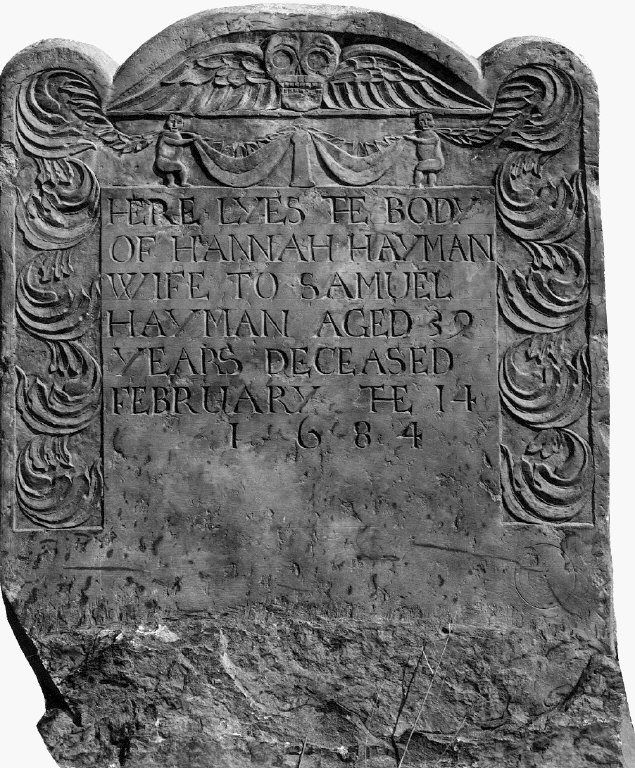 HERE LYES THE BODY
OF HANNAH HAYMAN
WIFE TO SAMUEL
HAYMAN AGED 39
YEARS DECEASED
FEBRUARY THE 14
1 6 8 4